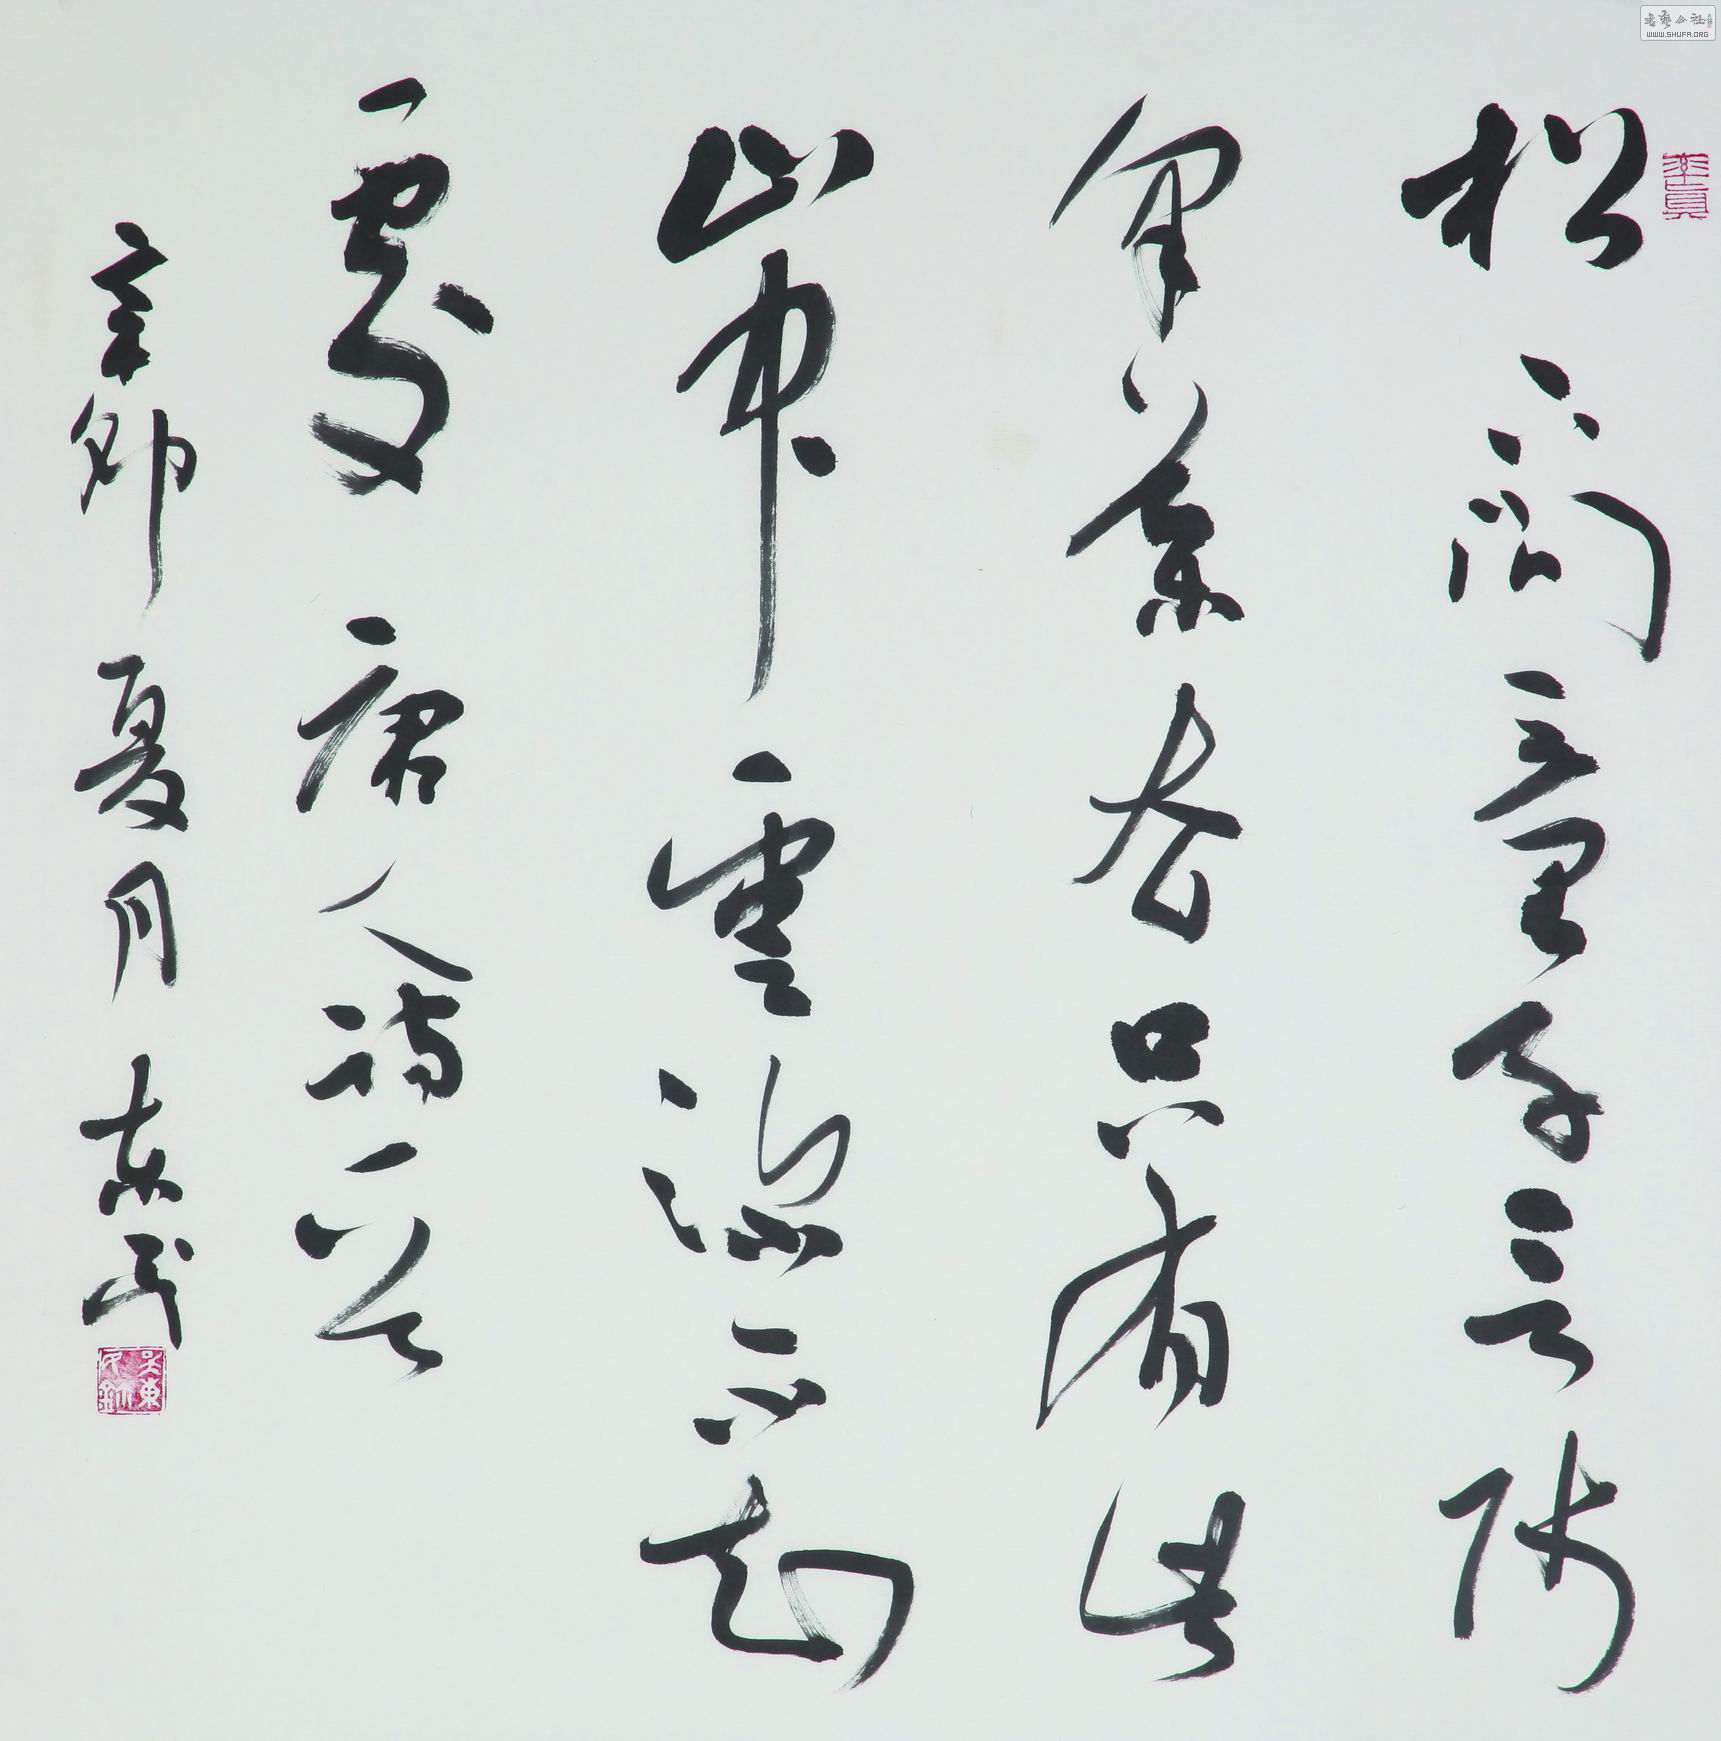 率真
松下問童子言師
采藥去只有此
山中雲深不知
處 唐人詩一首
辛卯夏月東民
WWW.SHUFA.ORG